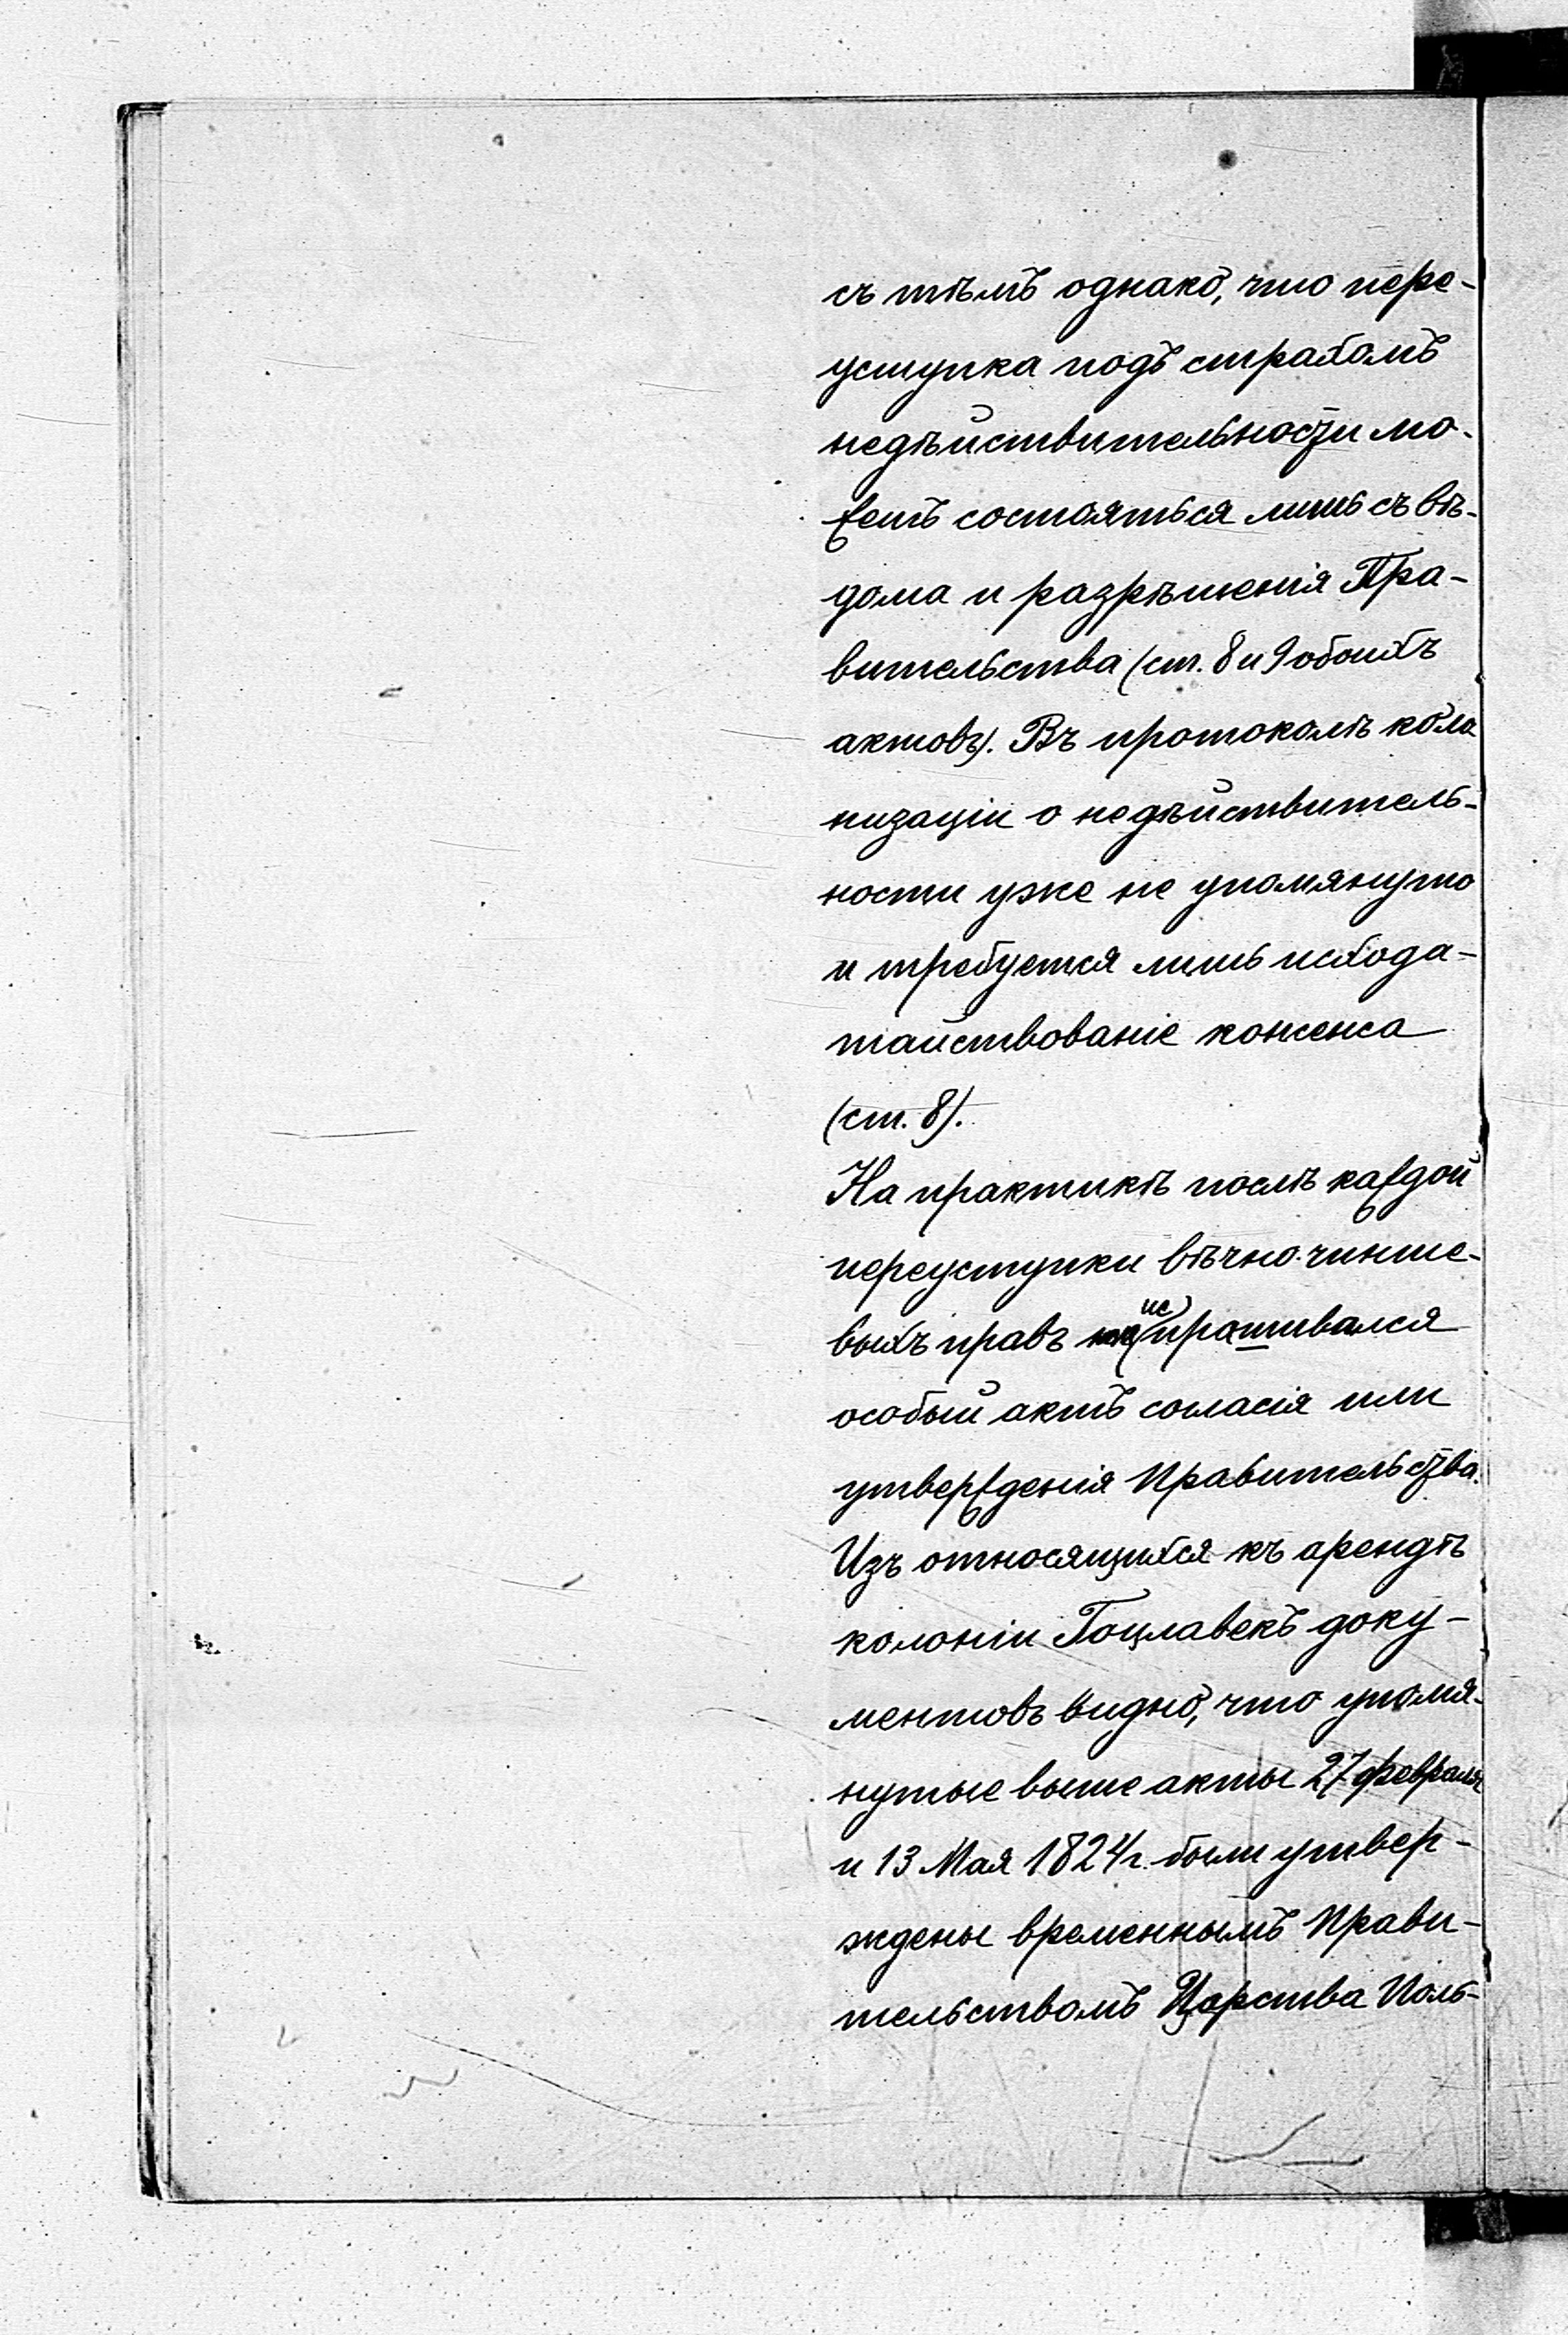 съ тѣмъ однако, что пере-
уступка подъ страхомъ
недѣйствительности мо-
жетъ состояться лишь съ вѣ-
дома и разрѣшенія Пра-
вительства (ст. 8 и 9 обоихъ
актовъ). Въ протоколѣ коло
низаціи о недѣйствитель-
ности уже не упомянуто
и требуется лишь исхода-
тайствованіе консенса
(ст. 8).
На практикѣ послѣ каждой
переуступки вѣчно-чинше-
выхъ правъ испрашивался
особый актъ согласія или
утвержденія Правительства.
Изъ относящихся къ арендѣ
колоніи Гоцлавекъ доку-
ментовъ видно, что упомя-
нутые выше акты 27 февраля
и 13 Мая 1824 г. были утвер-
ждены временнымъ Прави-
тельствомъ Царства Поль-